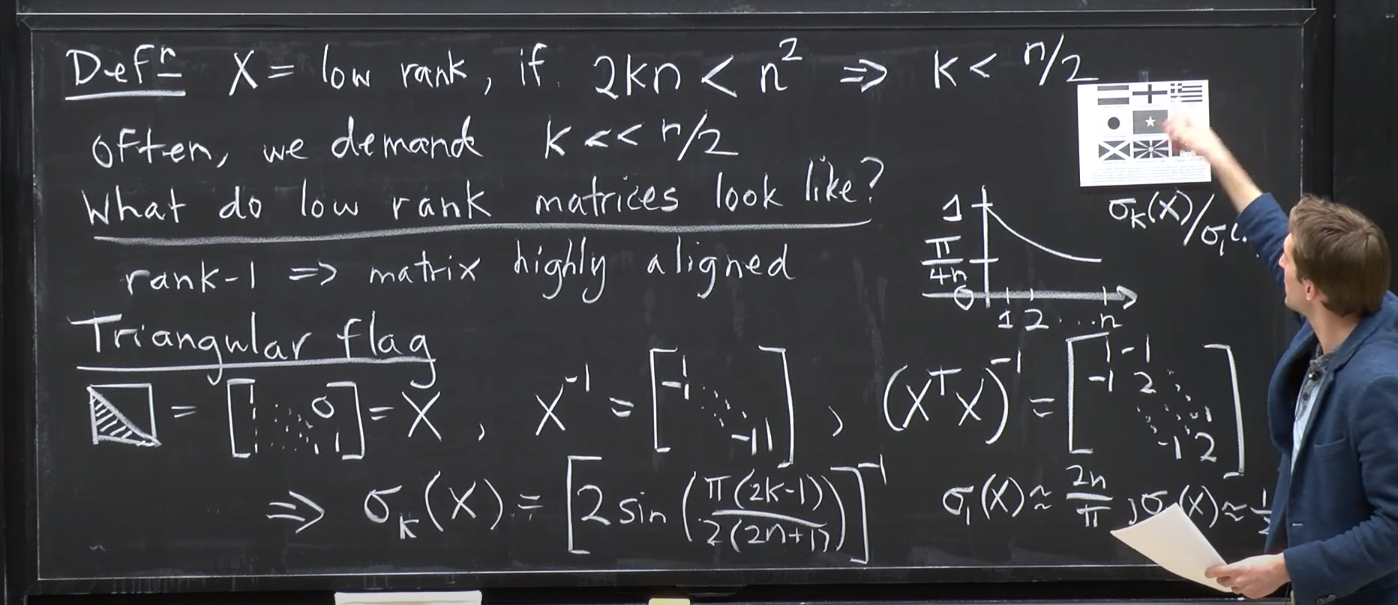 Defⁿ X = low rank, if 2kn < n² ⇒ k < n/2
often, we demand k << n/2
What do low rank matrices look like?
rank-1 ⇒ matrix highly aligned
1
π/4n
0
1 2 ... n
σₖ(X)/σ₁(
Triangular flag
= [1 0 1 1] = X , X⁻¹ = [1 -1 -1 1] , (XᵀX)⁻¹ = [1 -1 -1 2 -1 -1 2]
⇒ σₖ(X) = [2 sin (π(2k-1)/2(2n+1))]⁻¹ σ₁(X) ≈ 2n/π ; σ (X) ≈ 1/